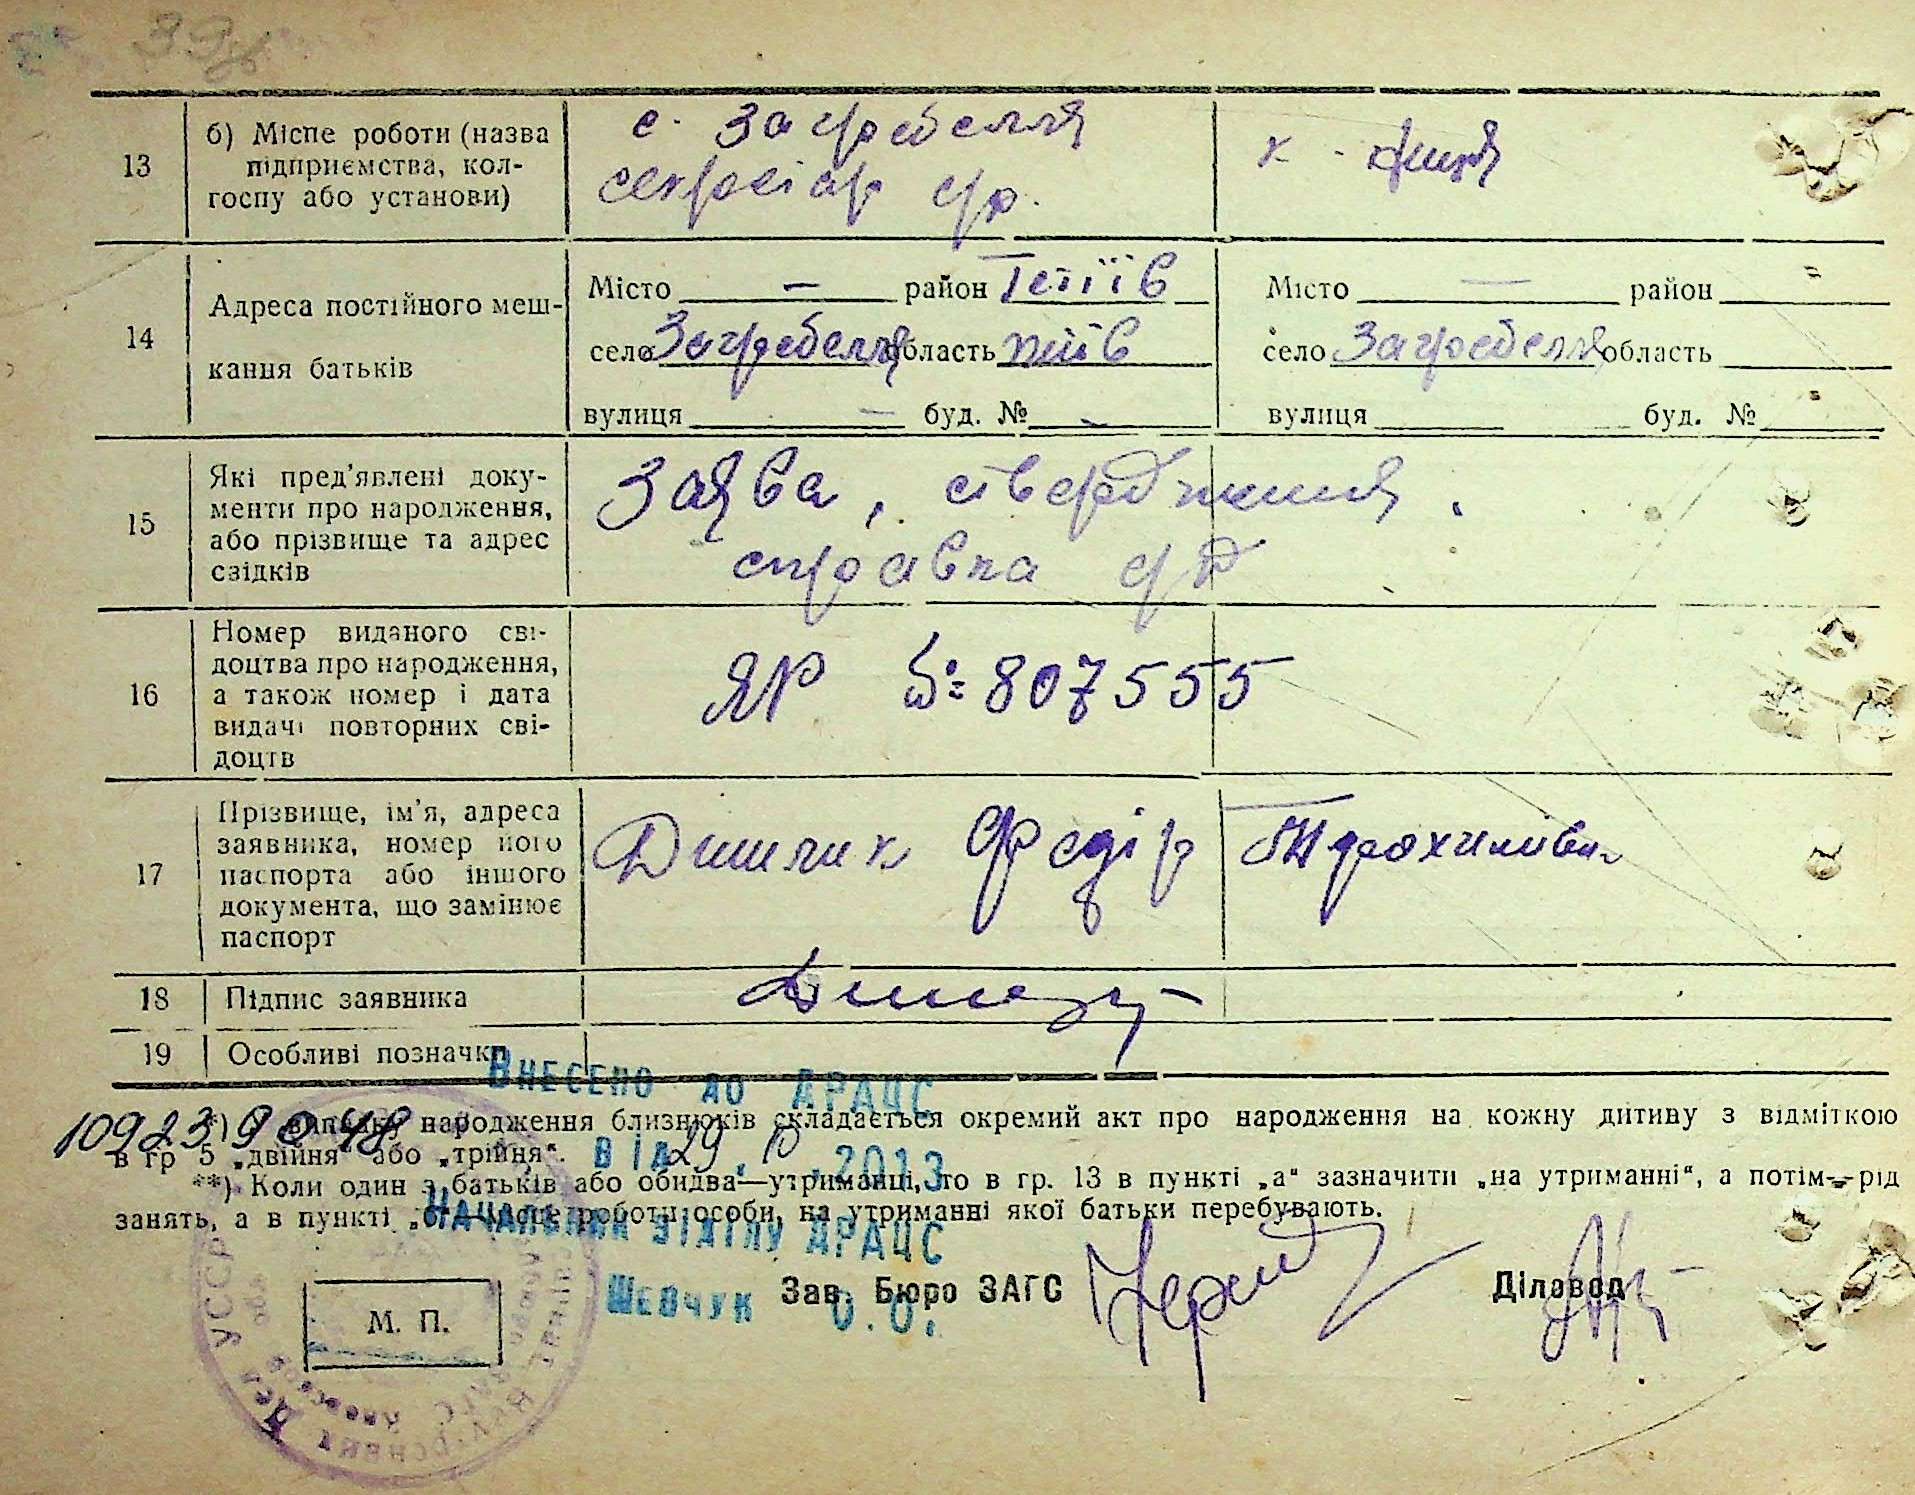 13
б) Місце роботи (назва
підприємства, кол-
госпу або установи)
с. Загребелля
секретар с/р.
к - тниця
14
Адреса постійного меш-
кання батьків
Місто — район Тетіїв
село Загребелля область Київ
вулиця — буд. № —
Місто — район "
село Загребелля область
вулиця буд. № "
15
Які пред'явлені доку-
менти про народження,
або прізвище та адрес
свідків
Заява, ствердження,
справка с/р
16
Номер виданого сві-
доцтва про народження,
а також номер і дата
видачі повторних сві-
доцтв
ЯР № 807555
17
Прізвище, ім'я, адреса
заявника, номер його
паспорта або іншого
документа, що замінює
паспорт
Федір
18
Підпис заявника
19
Особливі позначки
Внесено до ДРАЦС
*) У випадку народження близнюків складається окремий акт про народження на кожну дитину з відміткою
в гр 5 „двійня" або „трійня".
від 29.10.2013
**) Коли один з батьків або обидва—утриманці, то в гр. 13 в пункті „а" зазначити „на утриманні", а потім—рід
занять, а в пункті „б"—місце роботи особи, на утриманні якої батьки перебувають.
Начальник відділу ДРАЦС
Шевчук О.О.
Зав. Бюро ЗАГС
Діловод
М. П.
УССР